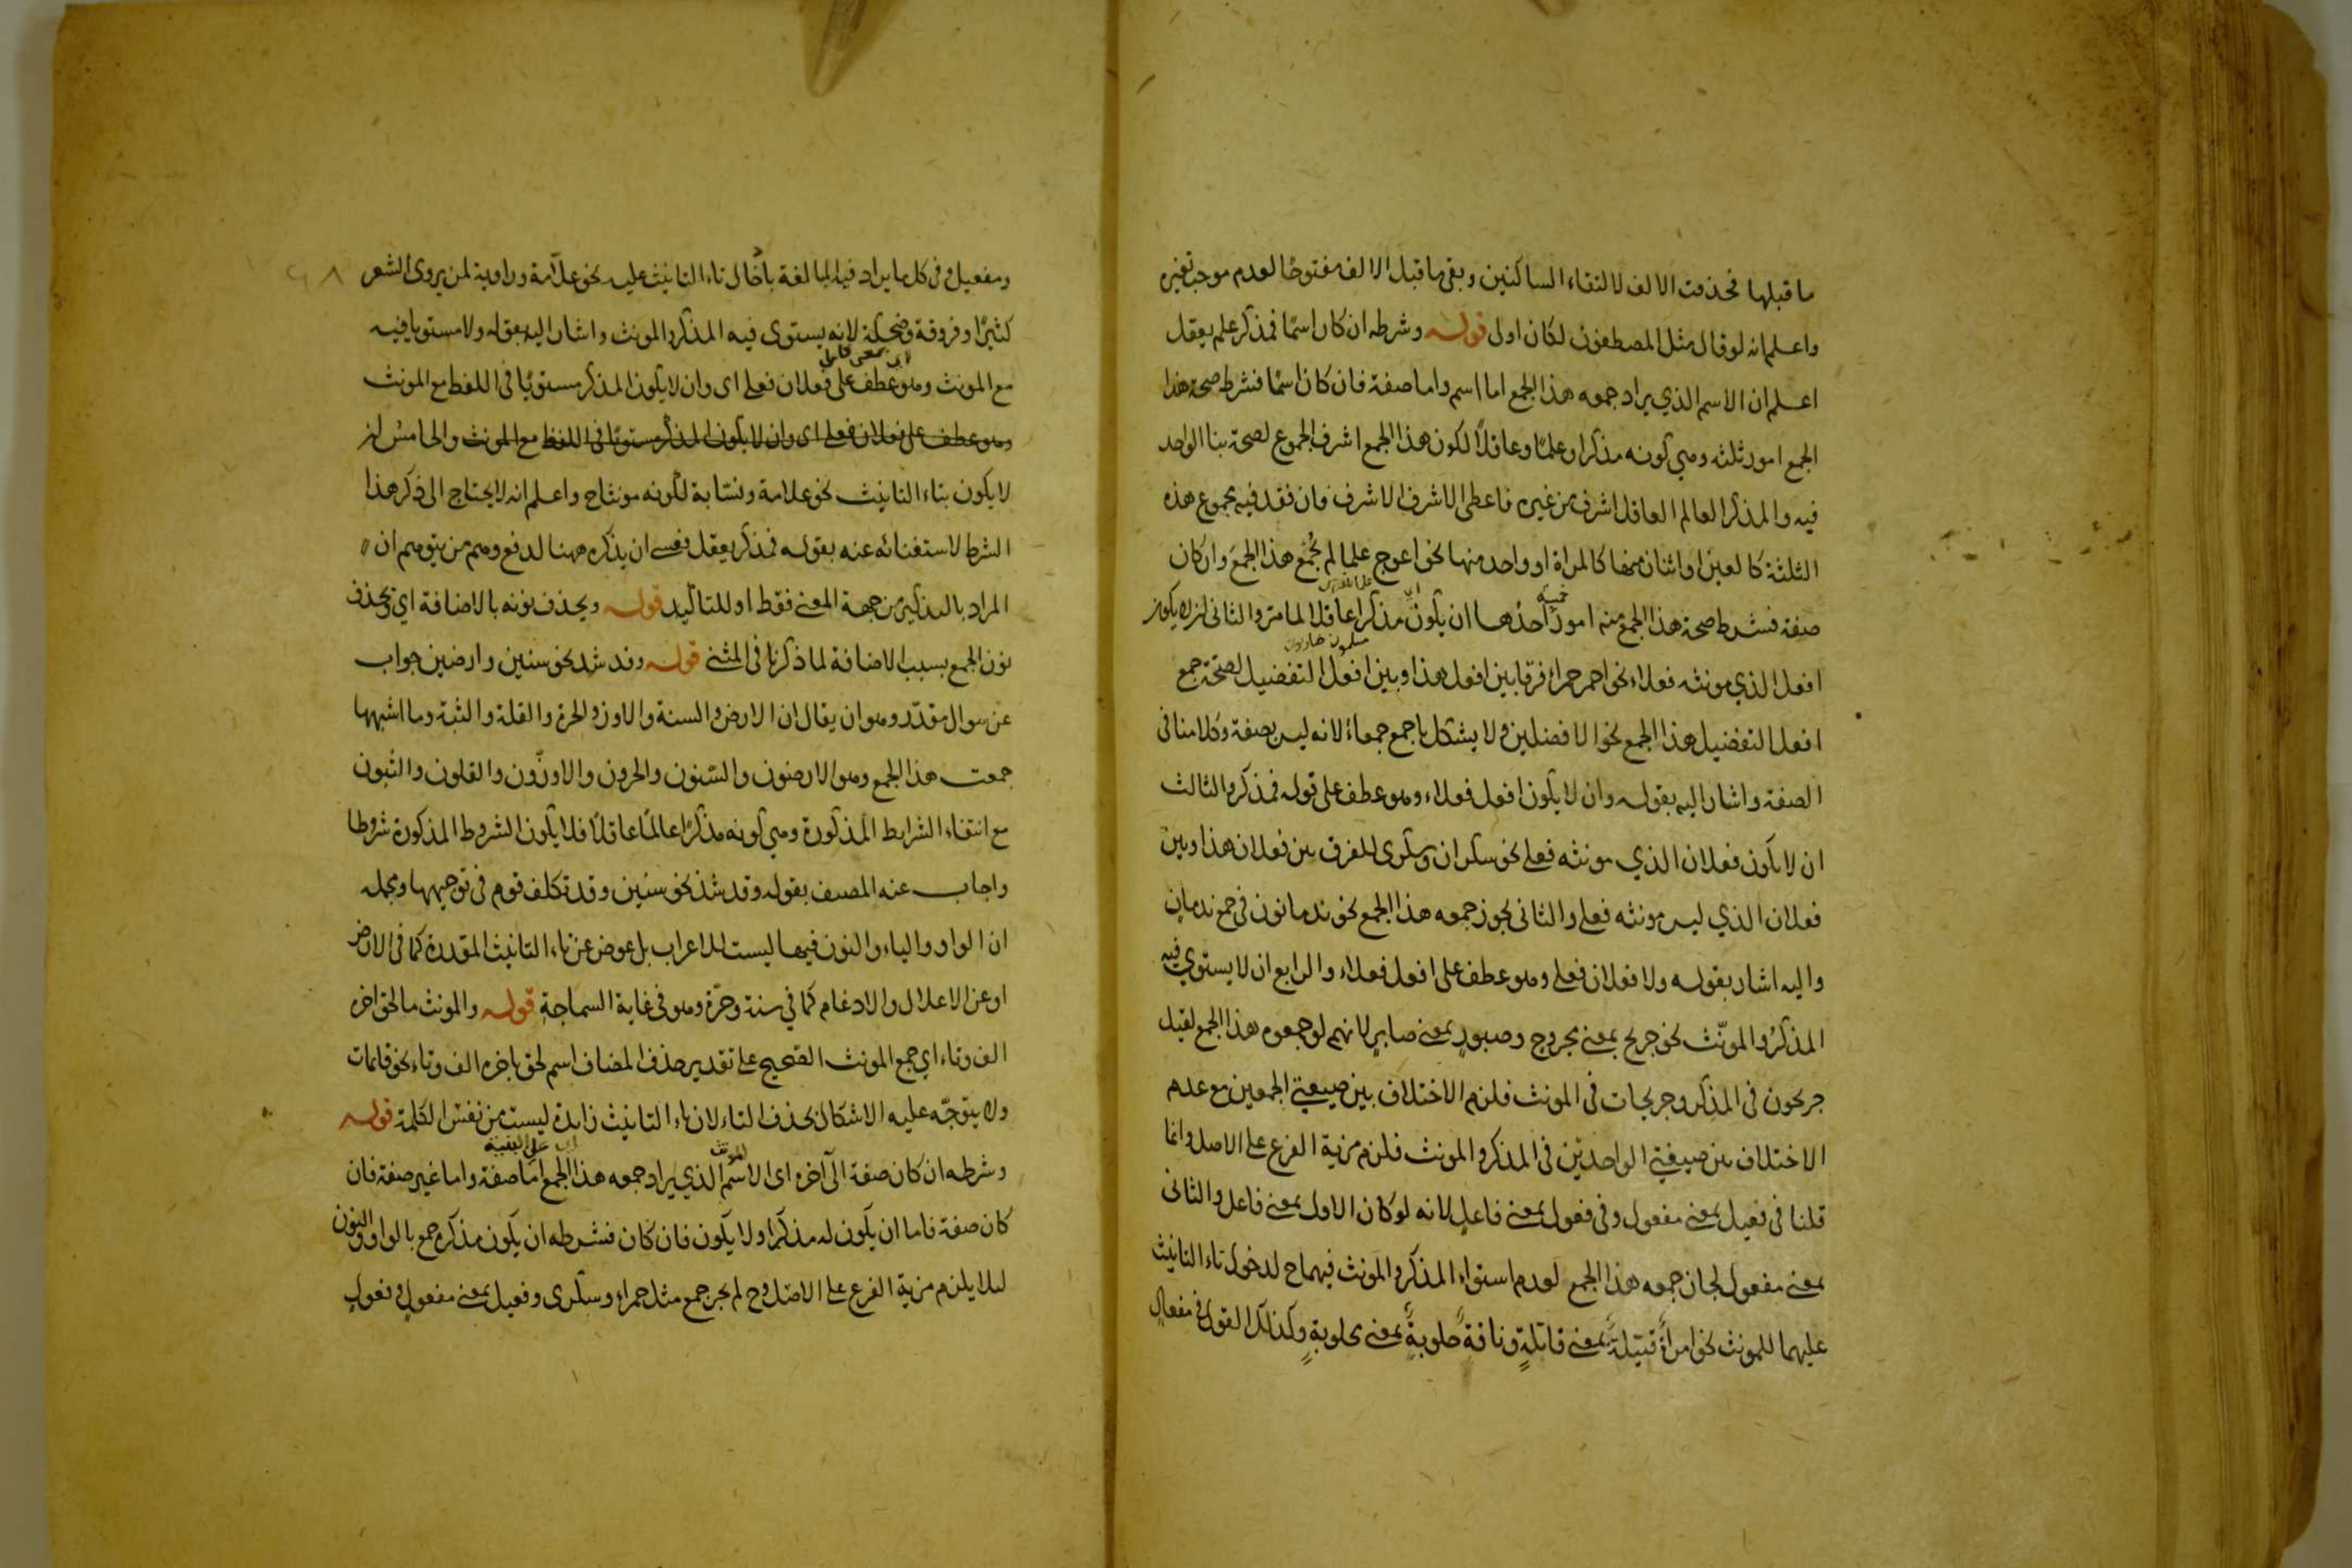 ما قبلها فحذفت الالف لالتقاء الساكنين وبقى ما قبل الالف مفتوحًا لعدم موجب تغيره
واعلم انه لو قال مثل المصطفون لكان اولى قوله وشرطه ان كان اسمًا فمذكر علم يعقل
اعلم ان الاسم الذي يراد جمعه هذا الجمع اما اسم واما صفة فان كان اسمًا فشرط صحة هذا
الجمع امور ثلثه وهي كونه مذكرا وعلمًا وعاقلًا لكون هذا الجمع اشرف الجموع لصحة بنا الواحد
فيه والمذكر العالم العاقل اشرف من غيره فاعطى الاشرف الاشرف فان فقد فيه مجموع هذه
الثلثة كالعين او اثنان منها كالمراة او واحد منها نحو اعوج علما لم يُجمع هذا الجمع وان كان
صفة فشرط صحة هذا الجمع منه امور خمسة احدها ان يكون مذكرا عاقلا لما مر والثانى ان لا يكون
افعل الذي مونثه فعلاء نحو احمر حمراء فرقا بين افعل هذا وبين افعل التفضيل لصحة جمع
افعل التفضيل هذا الجمع نحو الافضلين ولا يشكل باجمع جمعاء لانه ليس بصفة وكلامنا في
الصفة واشار اليه بقوله وان لا يكون افعل فعلاء وهو عطف على قوله فمذكر والثالث
ان لا يكون فعلان الذي مونثه فعلى نحو سكران وسكرى للفرق بين فعلان هذا وبين
فعلان الذي ليس مونثه فعلى والثانى يجوز جمعه هذا الجمع نحو ندمانون في جمع ندمان
واليه اشار بقوله ولا فعلان فعلى وهو عطف على افعل فعلاء والرابع ان لا يستوي فيه
المذكر والمونّث نحو جريح بمعنى مجروح وصبور بمعنى صابر لانهم لو جمعوه هذا الجمع لقيل
جريحون في المذكر وجريحات في المونث فلزم الاختلاف بين صيغتي الجمعين مع عدم
الاختلاف بين صيغتي الواحدين في المذكر والمونث فلزم مزية الفرع على الاصل وانما
قلنا في فعيل بمعنى مفعول وفى فعول بمعنى فاعل لانه لو كان الاول بمعنى فاعل والثانى
بمعنى مفعول لجاز جمعه هذا الجمع لعدم استواء المذكر والمونث فيهما ح لدخول تاء التانيث
عليهما للمونث نحو امراة قتيلة بمعنى قاتلة وناقة حلوبة بمعنى محلوبة وكذلك القول في مفعال
ومفعيل وفى كل ما يراد فيه المبالغة بادخال تاء التانيث عليه نحو علامة وراوية لمن يروى الشعر
كثيرًا وفروقة وضحكة لانه يستوى فيه المذكر والمونث واشار اليه بقوله ولا مستويا فيه
مع المونث وهو عطف على فعلان فعلى اى وان لا يكون المذكر مستويًا في اللفظ مع المونث
وهو عطف على فعلان فعلى اى وان لا يكون المذكر مستويًا في اللفظ مع المونث والخامس ان
لا يكون بتاء التانيث نحو علامة ونسّابة لكونه مونثا ح واعلم انه لا يحتاج الى ذكر هذا
الشرط لاستغنائه عنه بقوله فمذكر يعقل فعسى ان يذكره ههنا لدفع وهم من يتوهم ان
المراد بالتذكير من جهة المعنى فقط او للتاكيد قوله ويحذف نونه بالاضافة اي ويحذف
نون الجمع بسبب الاضافة لما ذكرنا في المثنى قوله وقد شذ نحو سنين وارضين جواب
عن سوال مقدّر وهو ان يقال ان الارض والسنة والاوز والحرة والقلة والثبة وما اشبهها
جمعت هذا الجمع وهو الارضون والسّنون والحرون والاوزّون والقلون والثبون
مع انتفاء الشرايط المذكورة وهي كونه مذكرًا عالمًا عاقلًا فلا يكون الشروط المذكورة شروطا
واجاب عنه المصنف بقوله وقد شذ نحو سنين وقد تكلف قوم في توجيهها ومجمله
ان الواو والياء والنون فيها ليست للاعراب بل عوض عن تاء التانيث المقدرة كما في الارض
او عن الاعلال والادغام كما في سنة وحرّة وهو في غاية السماجة قوله والمونث ما لحق اخره
الف وتاء اي جمع المونث الصحيح على تقدير حذف المضاف اسم لحق باخره الف وتاء نحو قائمات
ولا يتوجّه عليه الاشكال بحذف التاء لان تاء التانيث زايدة ليست من نفس الكلمة قوله
وشرطه ان كان صفة الى آخره اى الاسم المونث الذي يراد جمعه هذا الجمع اما صفة واما غير صفة فان
كان صفة فاما ان يكون له مذكر او لا يكون فان كان فشرطه ان يكون مذكره جمع بالواو والنون
لئلا يلزم مزية الفرع على الاصل وح لم يجز جمع مثل حمراء وسكرى وفعيل بمعنى مفعول وفعول